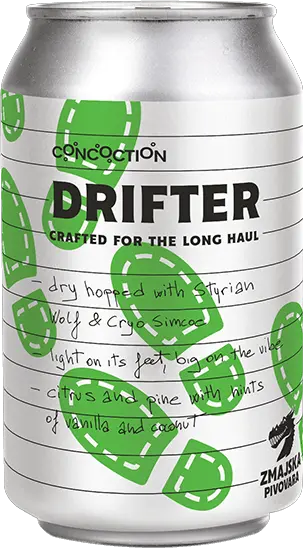 CONCOCTION
DRIFTER
CRAFTED FOR THE LONG HAUL
- dry hopped with Styrian
Wolf & Cryo Simcoe
- light on its feet, big on the vibe
- citrus and pine with hints
of vanilla and coconut
ZMAJSKA
PIVOVARA